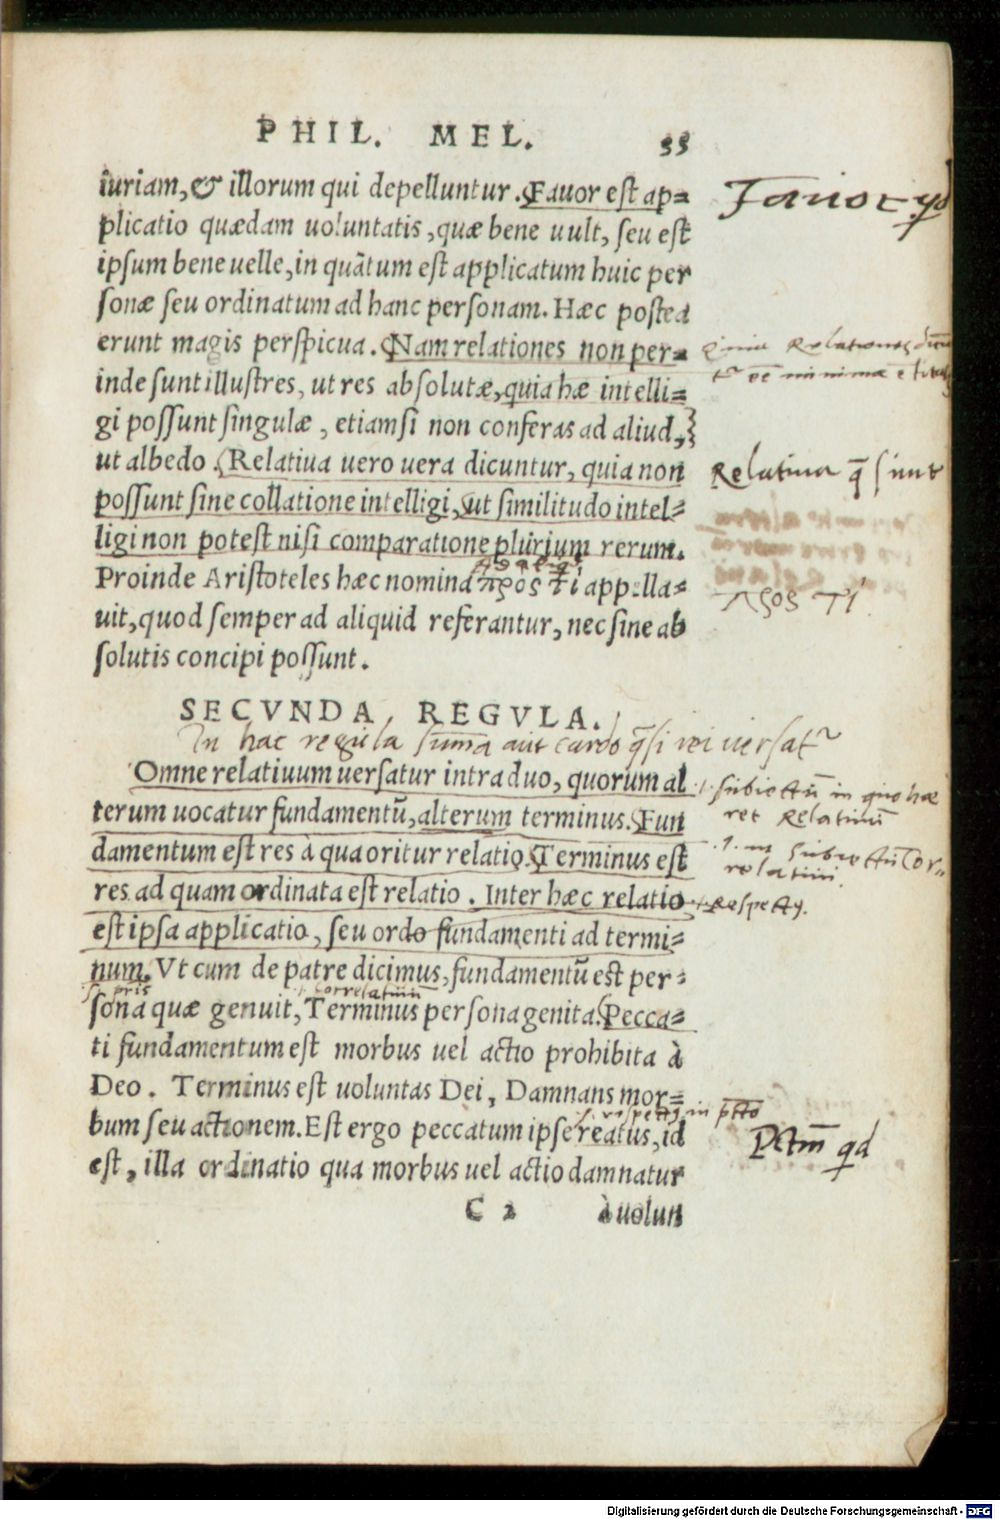 PHIL. MEL. 33
iuriam, & illorum qui depelluntur. Fauor est ap=
Fauor qd
plicatio quædam uoluntatis, quæ bene uult, seu est
ipsum bene uelle, in quãtum est applicatum huic per
sonæ seu ordinatum ad hanc personam. Hæc postea
erunt magis perspicua. Nam relationes non per=
relationes
inde sunt illustres, ut res absolutæ, quia hæ intelli=
gi possunt singulæ, etiamsi non conferas ad aliud,
ut albedo. Relatiua uero uera dicuntur, quia non
Relatiua q̃ sunt
possunt sine collatione intelligi, ut similitudo intel=
ligi non potest nisi comparatione plurium rerum.
Proinde Aristoteles hæc nomina πρὸς τὶ appella=
πρὸς τί
uit, quod semper ad aliquid referantur, nec sine ab
solutis concipi possunt.
SECVNDA REGVLA.
In hac regula summa aut cardo q̃si rei uersat~
Omne relatiuum uersatur intra duo, quorum al
subiectũ in quo hæ
terum uocatur fundamentũ, alterum terminus. Fun
ret Relatiuũ
damentum est res à qua oritur relatio. Terminus est
.i. in subiectũ Cor=
relatiui.
res ad quam ordinata est relatio. Inter hæc relatio
Respectꝰ.
est ipsa applicatio, seu ordo fundamenti ad termi=
num. Vt cum de patre dicimus, fundamentũ est per=
pris correlatiuũ
sona quæ genuit, Terminus persona genita. Pecca=
ti fundamentum est morbus uel actio prohibita à
Deo. Terminus est uoluntas Dei, Damnans mor=
.i. respectꝰ in pctõ
bum seu actionem. Est ergo peccatum ipse reatus, id
Pctm̃ qd
est, illa ordinatio qua morbus uel actio damnatur
C 2 à uolun
Digitalisierung gefördert durch die Deutsche Forschungsgemeinschaft - DFG